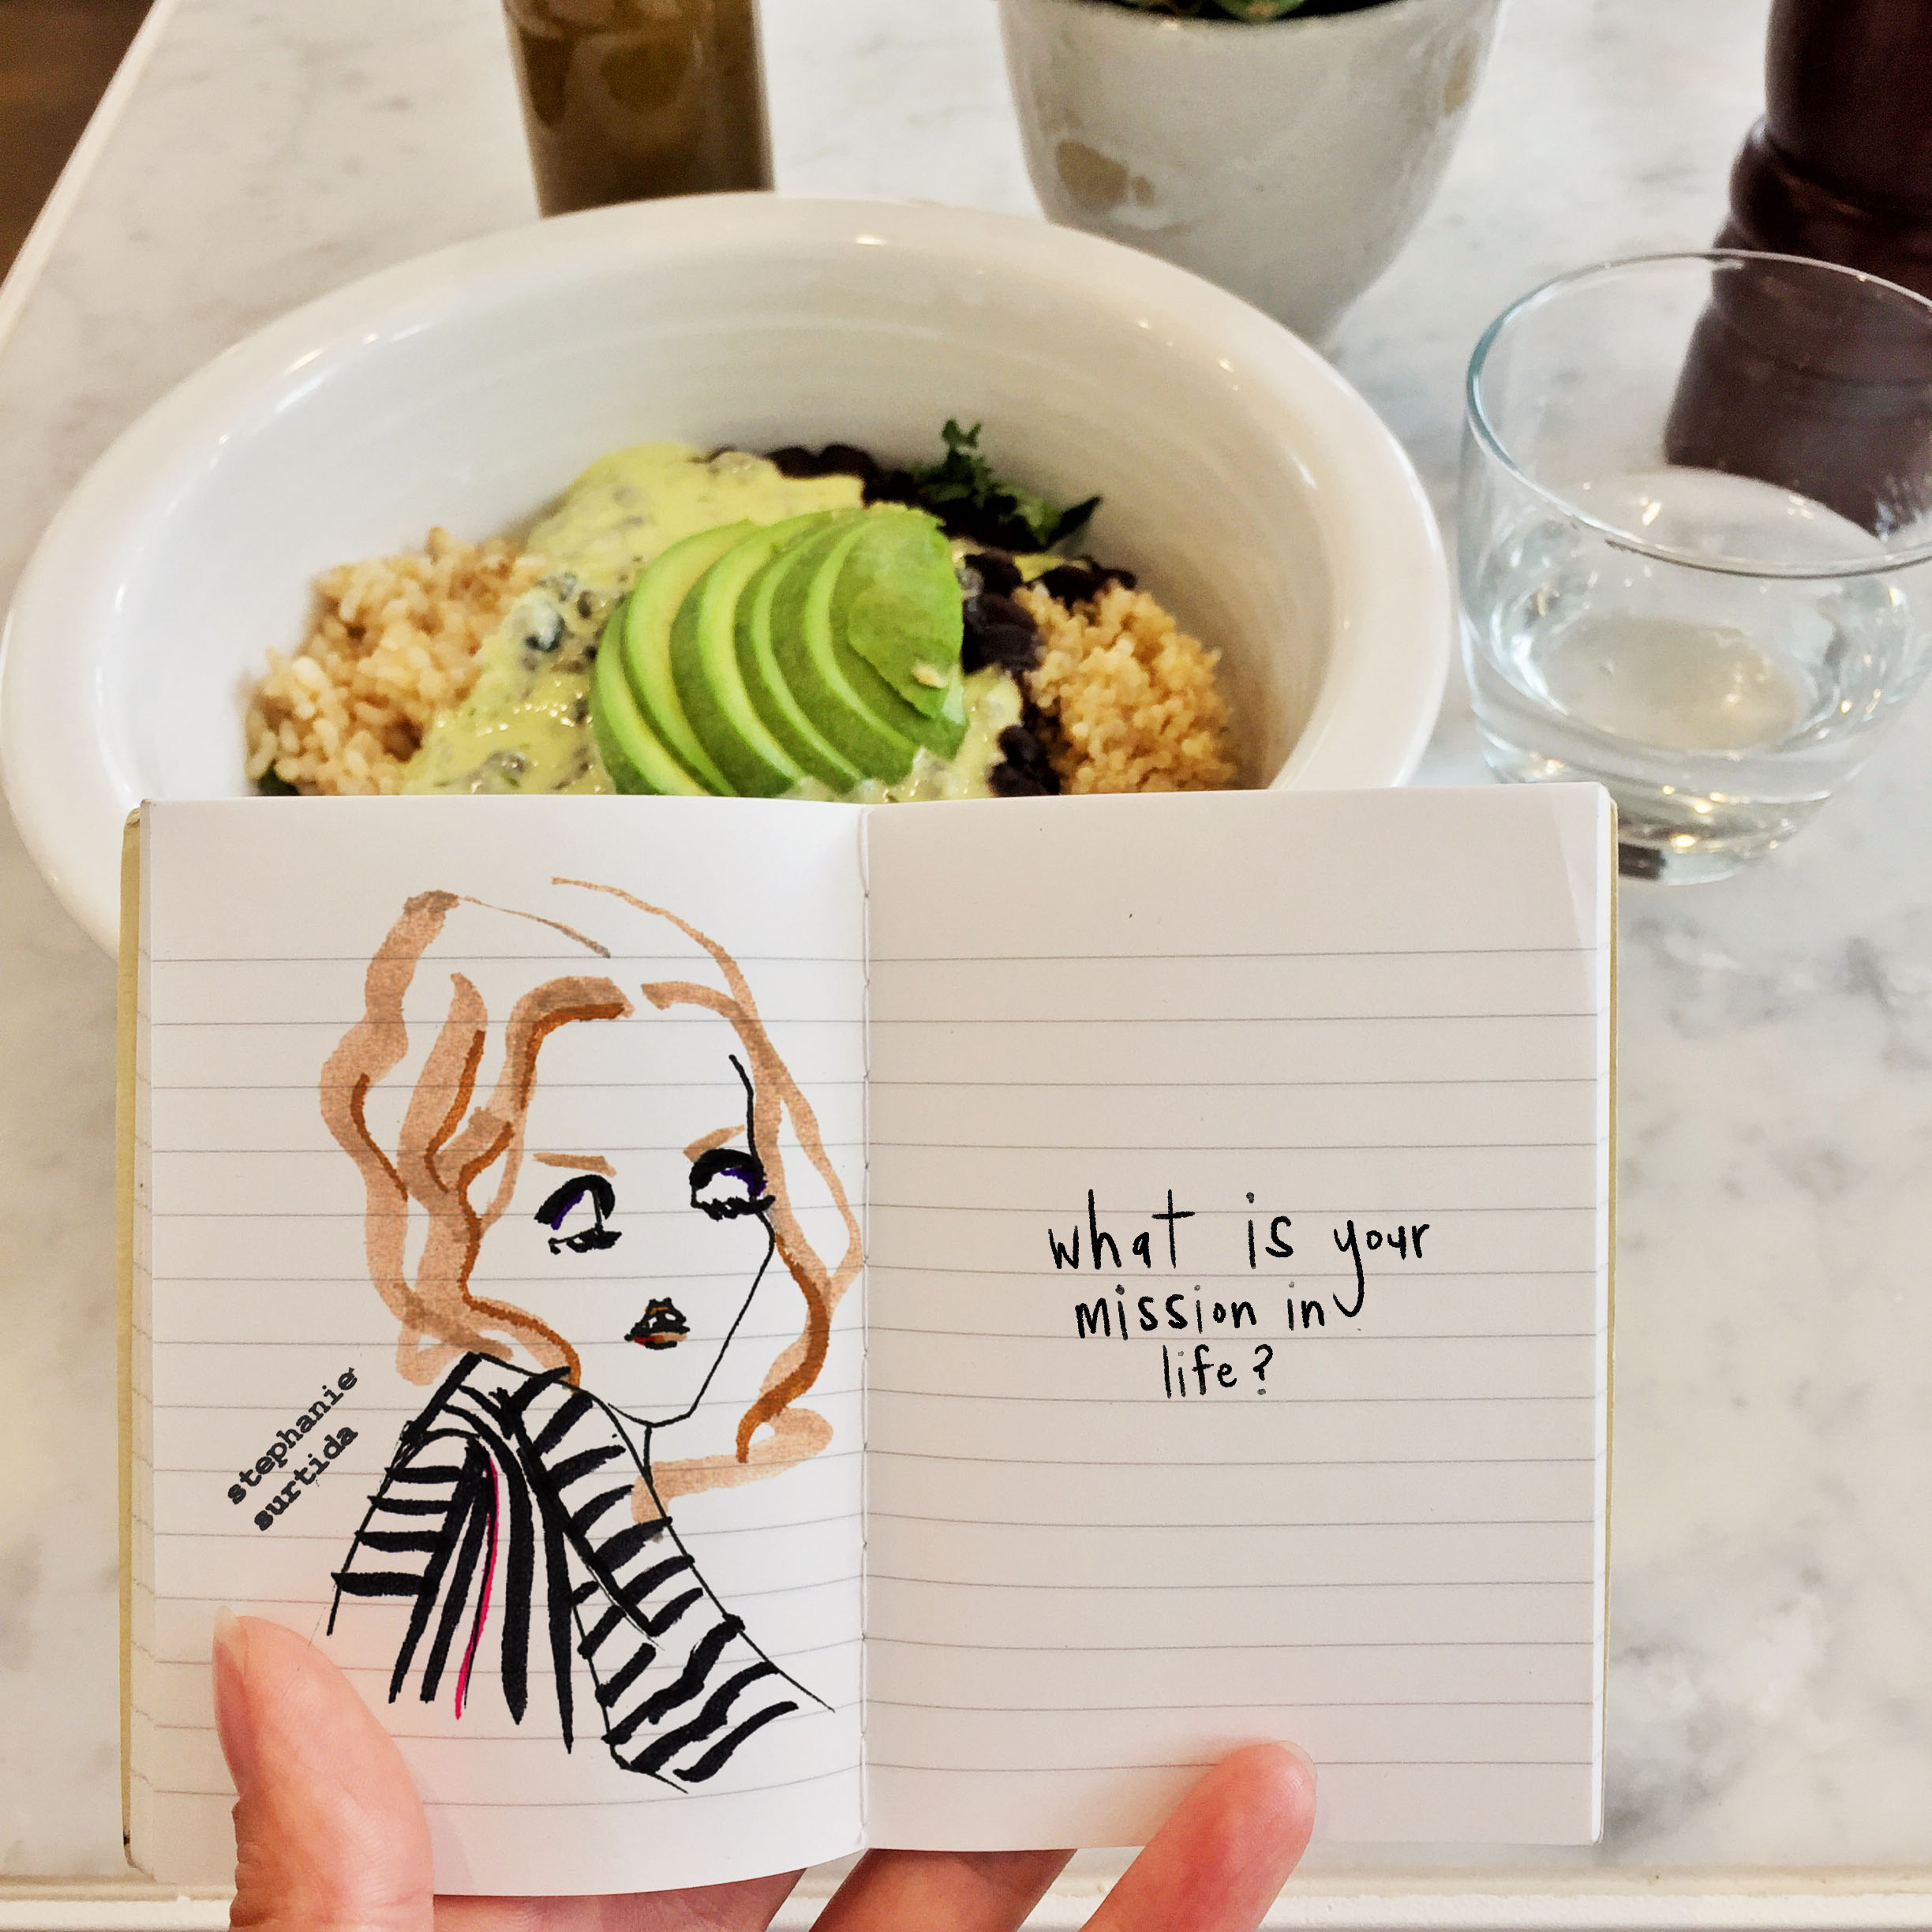 stephanie
surtida
what is your
mission in
life?